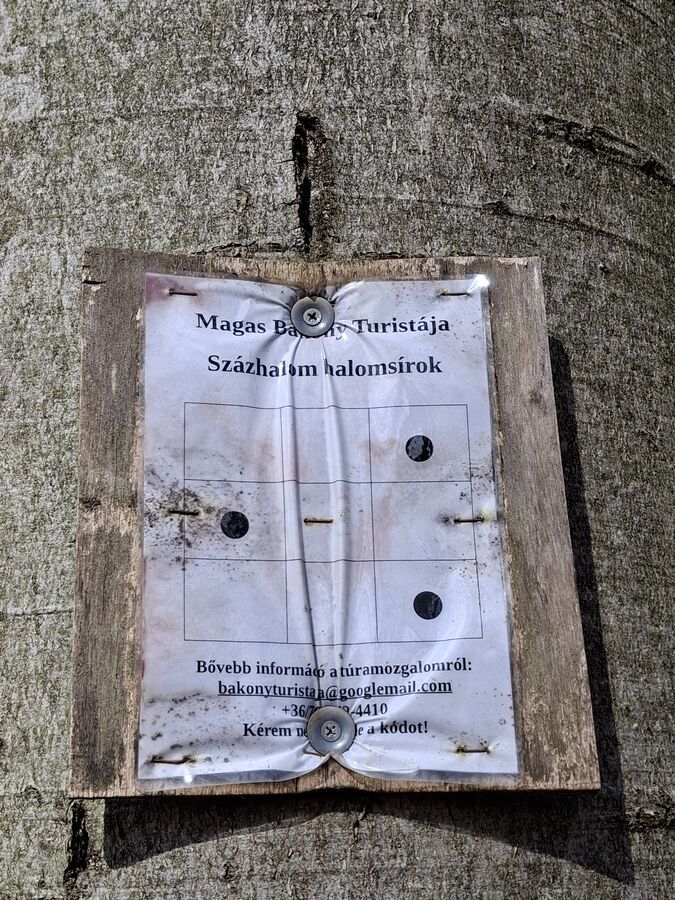 Magas Bakony Turistája
Százhalom halomsírok
Bővebb információ a túramozgalomról:
bakonyturistaja@googlemail.com
-4410
Kérem a kódot!